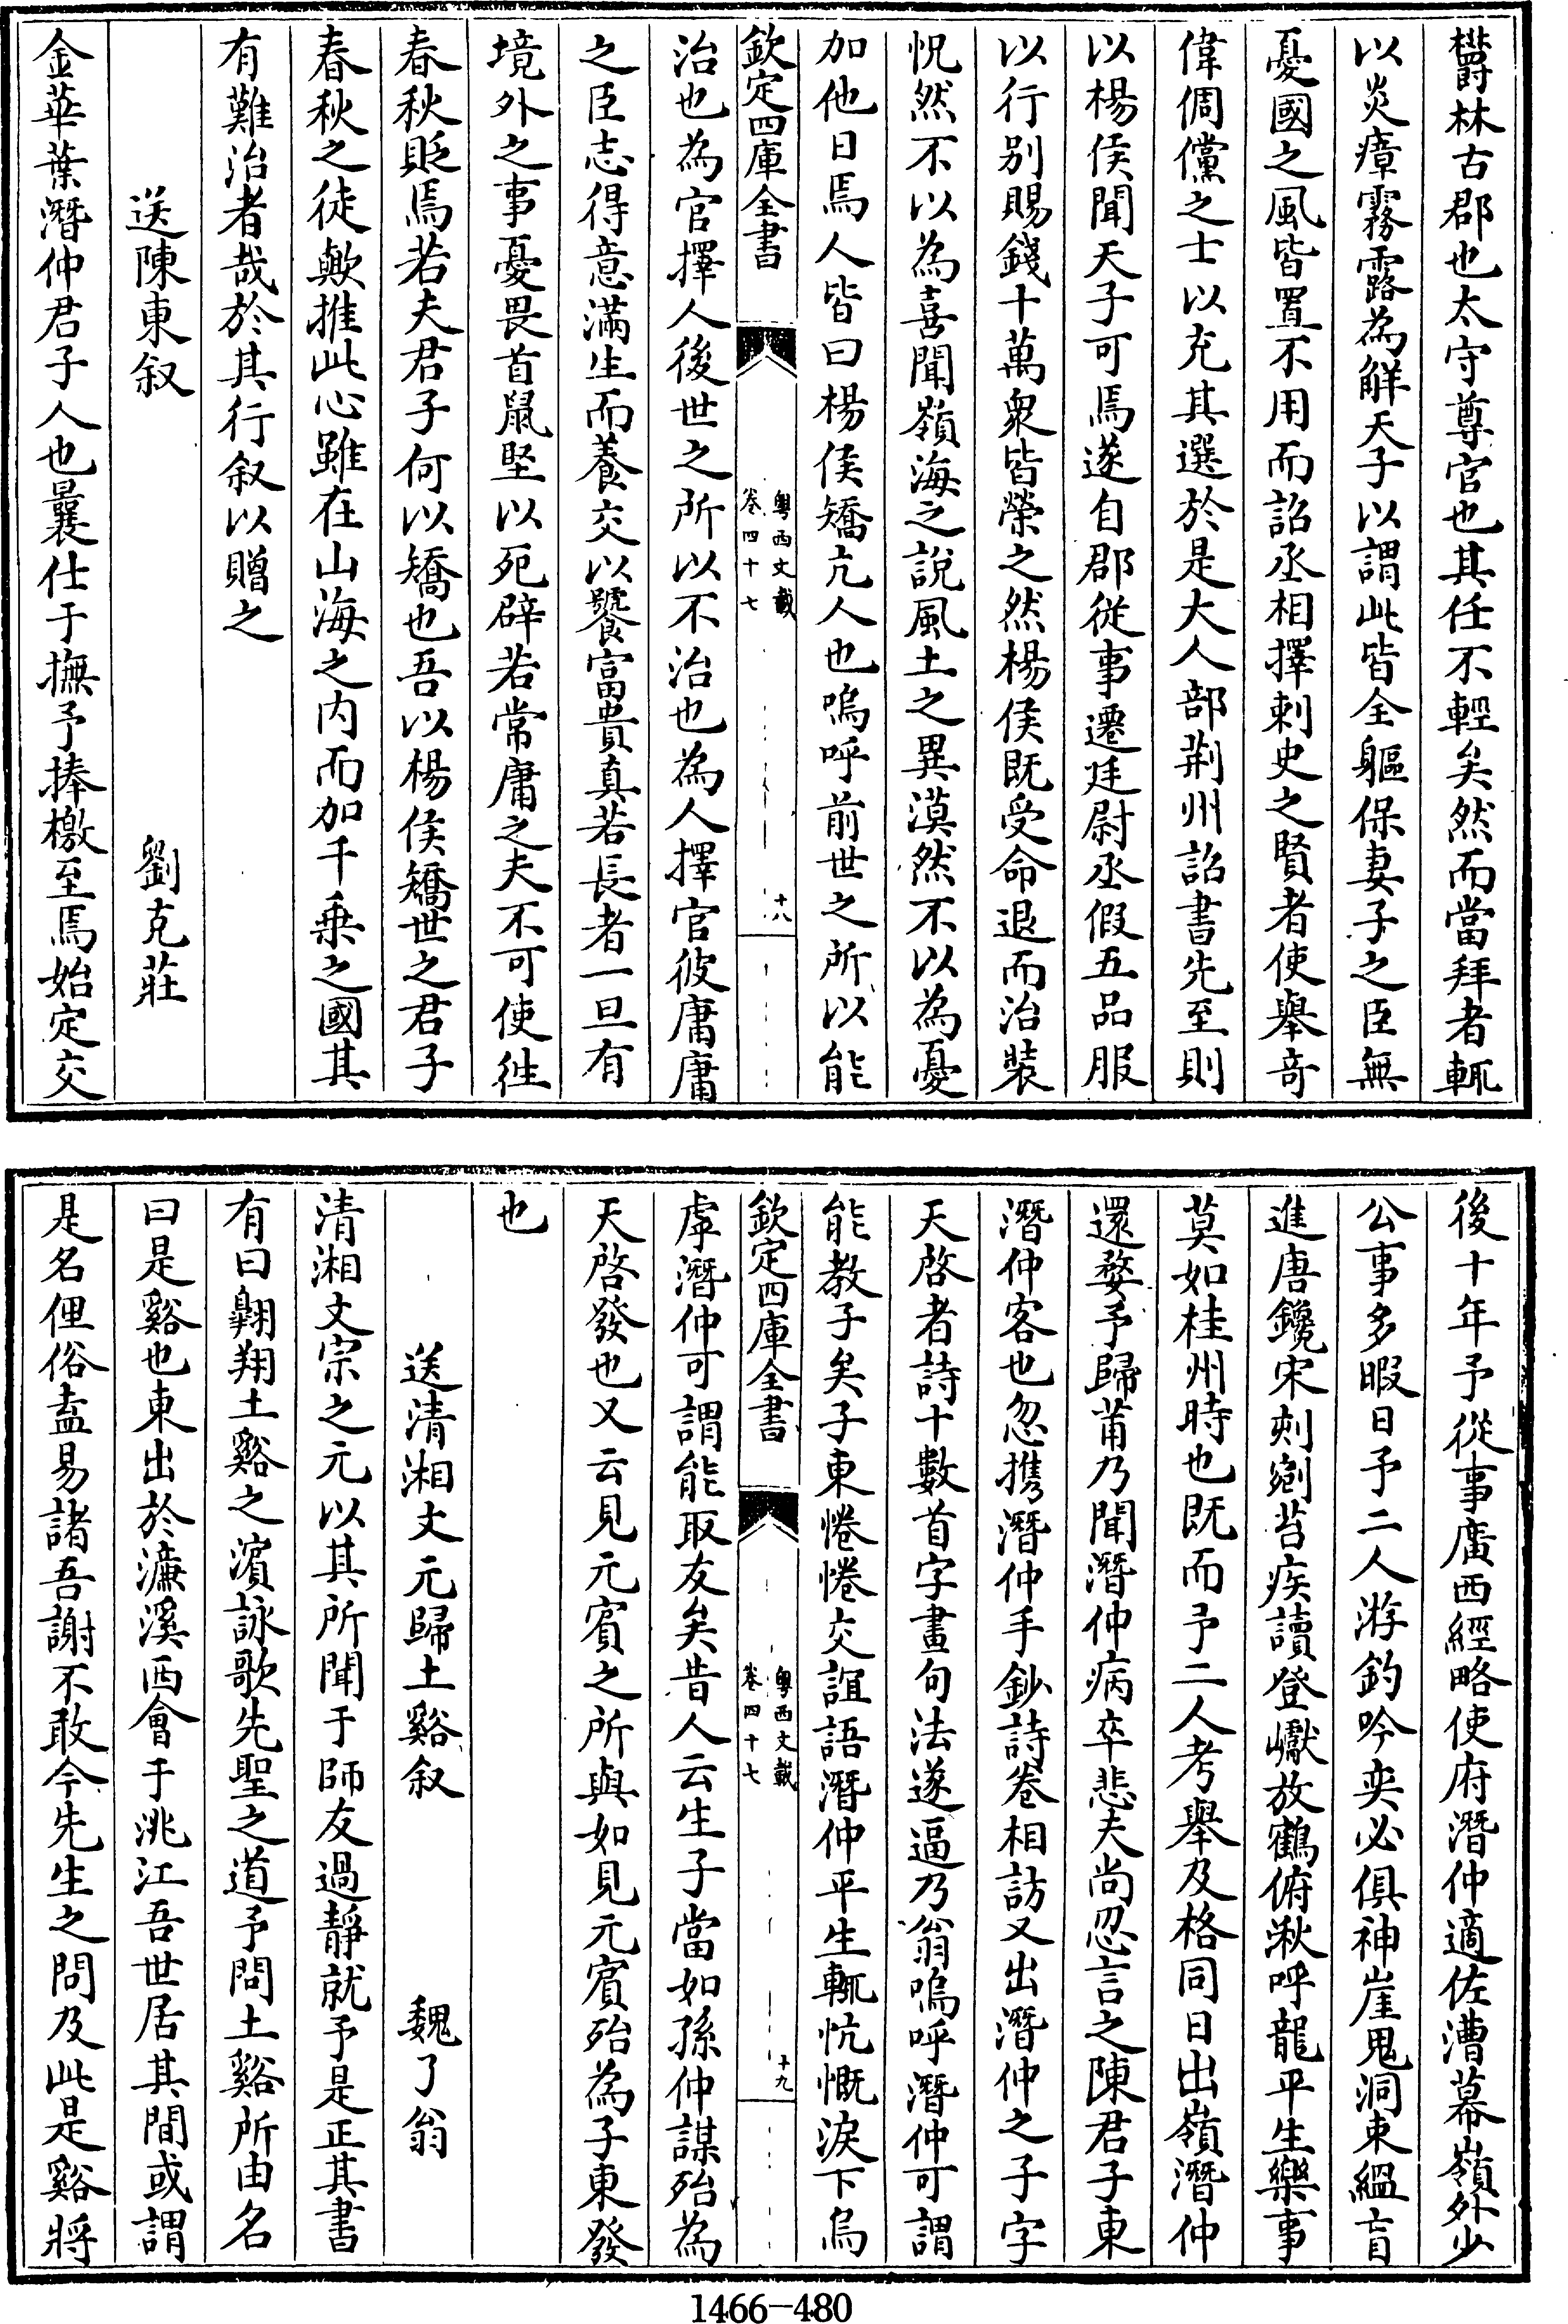 欝林古郡也太守尊官也其任不輕矣然而當拜者輒
以炎瘴霧露為觧天子以謂此皆全軀保妻子之臣無
憂國之風皆置不用而詔丞相擇刺史之賢者使舉奇
偉倜儻之士以充其選於是大人部荆州詔書先至則
以楊侯聞天子可焉遂自郡從事遷廷尉丞假五品服
以行别賜錢十萬衆皆榮之然楊侯既受命退而治裝
怳然不以為喜聞嶺海之說風土之異漠然不以為憂
加他日焉人皆曰楊侯矯亢人也嗚呼前世之所以能
欽定四庫全書
粤西文載
卷四十七
十八
治也為官擇人後世之所以不治也為人擇官彼庸庸
之臣志得意滿生而養交以饕富貴真若長者一旦有
境外之事憂畏首鼠堅以死辟若常庸之夫不可使徃
春秋貶焉若夫君子何以矯也吾以楊侯矯世之君子
春秋之徒歟推此心雖在山海之内而加千乗之國其
有難治者哉於其行叙以贈之
送陳東叙
劉克莊
金華葉潛仲君子人也曩仕于撫予捧檄至焉始定交
後十年予從事廣西經略使府潛仲適佐漕幕嶺外少
公事多暇日予二人游釣吟奕必俱神崖鬼洞束緼盲
進唐鑱宋刻剜苔疾讀登巘放鶴俯湫呼龍平生樂事
莫如桂州時也既而予二人考舉及格同日出嶺潛仲
還婺予歸莆乃聞潛仲病卒悲夫尚忍言之陳君子東
潛仲客也忽携潛仲手鈔詩卷相訪又出潛仲之子字
天啓者詩十數首字畫句法遂逼乃翁嗚呼潛仲可謂
能教子矣子東惓惓交誼語潛仲平生輒忼慨淚下烏
欽定四庫全書
粤西文載
卷四十七
十九
虖潛仲可謂能取友矣昔人云生子當如孫仲謀殆為
天啓發也又云見元賓之所與如見元賓殆為子東發
也
送清湘文元歸土谿叙
魏了翁
清湘文宗之元以其所聞于師友過靜就予是正其書
有曰翺翔土谿之濱詠歌先聖之道予問土谿所由名
曰是谿也東出於濂溪西會于洮江吾世居其間或謂
是名俚俗盍易諸吾謝不敢今先生之問及此是谿將
1466-480